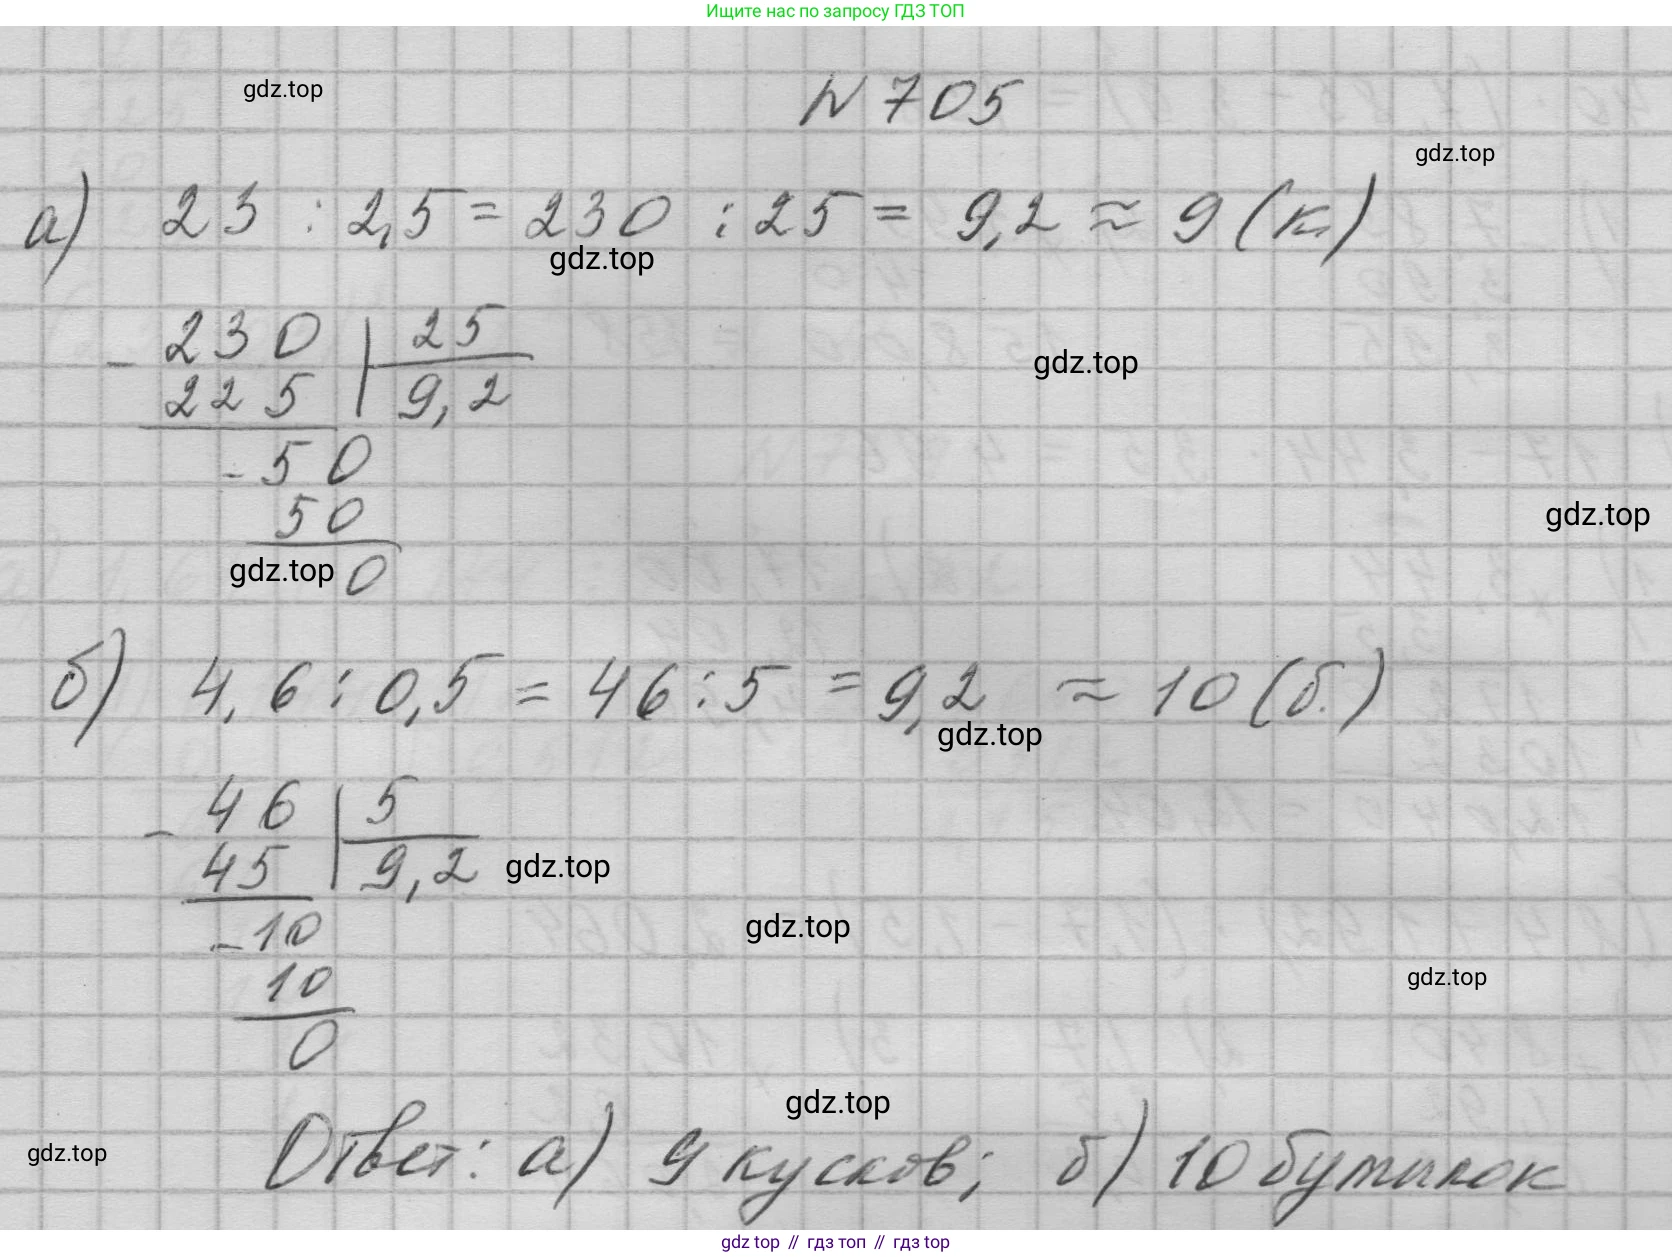 Ищите нас по запросу ГДЗ ТОП
gdz.top
N 705
gdz.top
а) 23 : 2,5 = 230 : 25 = 9,2 ≈ 9 (к.)
gdz.top
- 230 | 25
gdz.top
225 | 9,2
- 50
50
gdz.top
gdz.top 0
б) 4,6 : 0,5 = 46 : 5 = 9,2 ≈ 10 (б.)
gdz.top
- 46 | 5
45 | 9,2 gdz.top
- 10
gdz.top
10
gdz.top
0
gdz.top
Ответ: а) 9 кусков; б) 10 бутылок
gdz.top
gdz top // гдз топ // гдз top